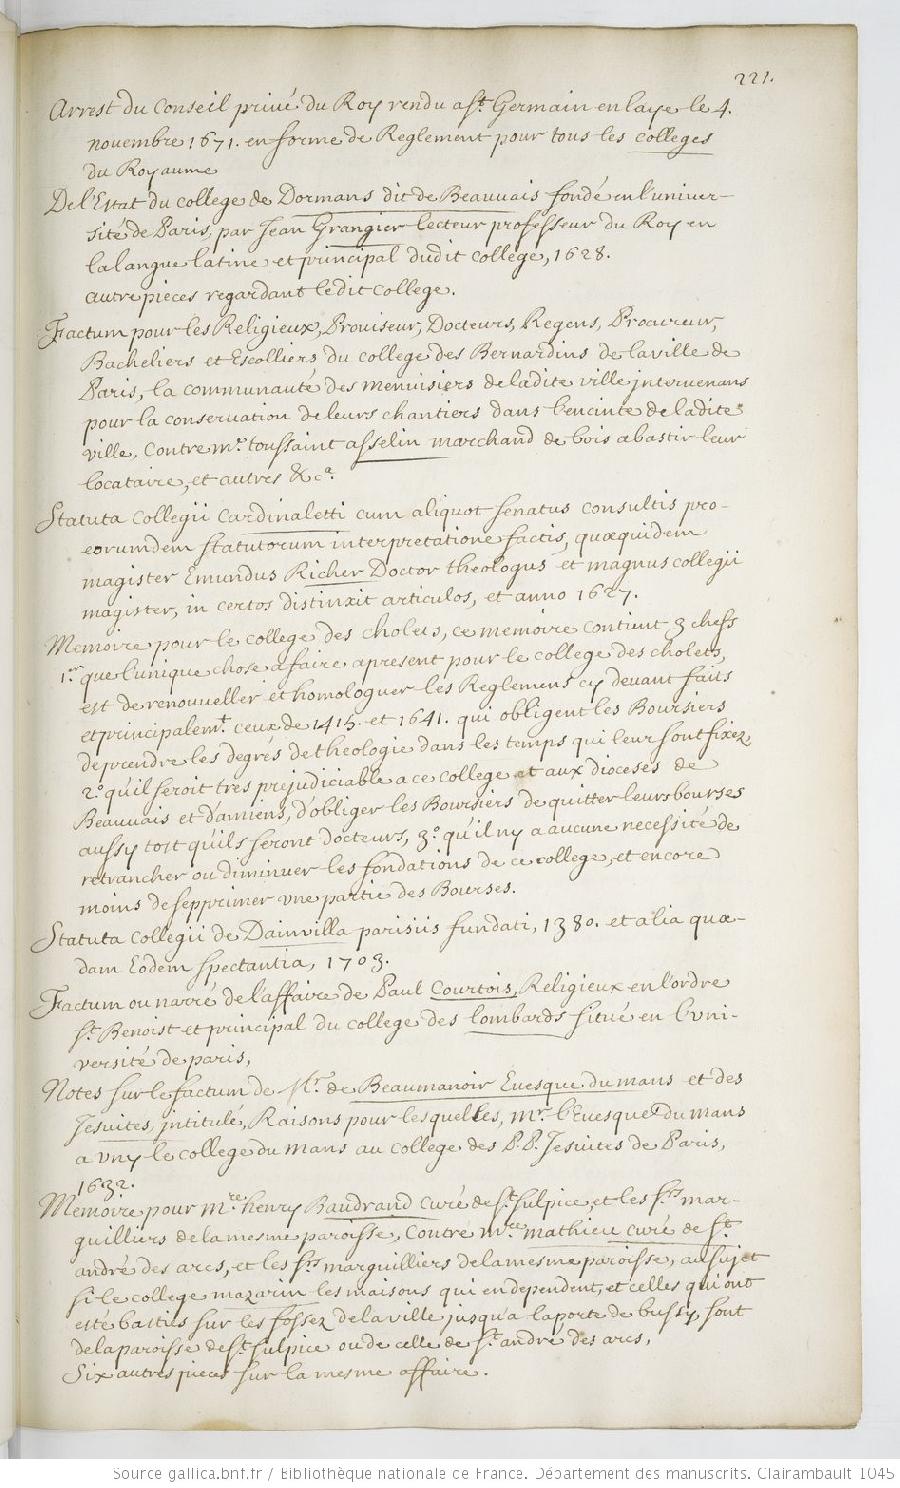 221.
Arrest du Conseil privé du Roy rendu a St. Germain en laye le 4.
novembre 1671. en forme de Reglement pour tous les colleges
du Royaume
De l'Estat du college de Dormans dit de Beauvais fondé en l'univer-
sité de Paris, par Jean Grangier lecteur professeur du Roy en
la langue latine et principal dudit college, 1628.
autre pieces regardant ledit college.
Factum pour les Religieux, Proviseur, Docteurs, Regens, Procureur,
Bacheliers et Escolliers du college des Bernardins de la ville de
Paris, la communauté des menuisiers de ladite ville jntervenans
pour la conservation de leurs chantiers dans l'encinte de ladite
ville. Contre me. toussaint asselin marchand de bois a bastir leur
locataire, et autres &ca.
Statuta collegii cardinaletti cum aliquot senatus consultis pro-
eorumdem statutorum interpretatione factis, quæquidem
magister Emundus Richer Doctor theologus et magnus collegii
magister, in certos distinxit articulos, et anno 1627.
Memoire pour le college des cholets, ce memoire contient 3 chefs
1er. que l'unique chose a faire apresent pour le college des cholets,
est de renouveller et homologuer les Reglemens cy devant faits
et principalemt. ceux de 1415. et 1641. qui obligent les Boursiers
de prendre les degrés de theologie dans les temps qui leur sont fixez,
2o. qu'il seroit tres prejudiciable a ce college et aux dioceses de
Beauvais et d'amiens, d'obliger les Boursiers de quitter leurs bourses
aussy tost qu'ils seront docteurs, 3o. qu'il ny a aucune necessité de
retrancher ou diminuer les fondations de ce college, et encore
moins de supprimer une partie des Bourses.
Statuta collegii de Dainvilla parisiis fundati, 1380. et alia quæ-
dam Eodem spectantia, 1703.
Factum ou narré de l'affaire de Paul Courtois, Religieux en l'ordre
St. Benoist et principal du college des lombards situé en l'uni-
versité de paris,
Notes sur le factum de Mr. de Beaumanoir Evesque du mans et des
Jesuites, jntitulé, Raisons pour lesquelles, mr. l'Evesque du mans
a vny le college du mans au college des P.P. Jesuites de Paris,
1632.
Memoire pour mre. henry Baudrand curé de St. sulpice, et les srs. mar-
guilliers de la mesme paroisse, Contre mre. mathieu curé de St.
andré des arcs, et les srs. marguilliers de la mesme paroisse, au sujet
si le college mazarin les maisons qui en dependent, et celles qui ont
esté basties sur les fossez de la ville jusqu'a la porte de bussy, sont
de la paroisse de St. sulpice ou de celle de St. andré des arcs,
Six autres pieces sur la mesme affaire.
Source gallica.bnf.fr / Bibliothèque nationale de France. Département des manuscrits. Clairambault 1045